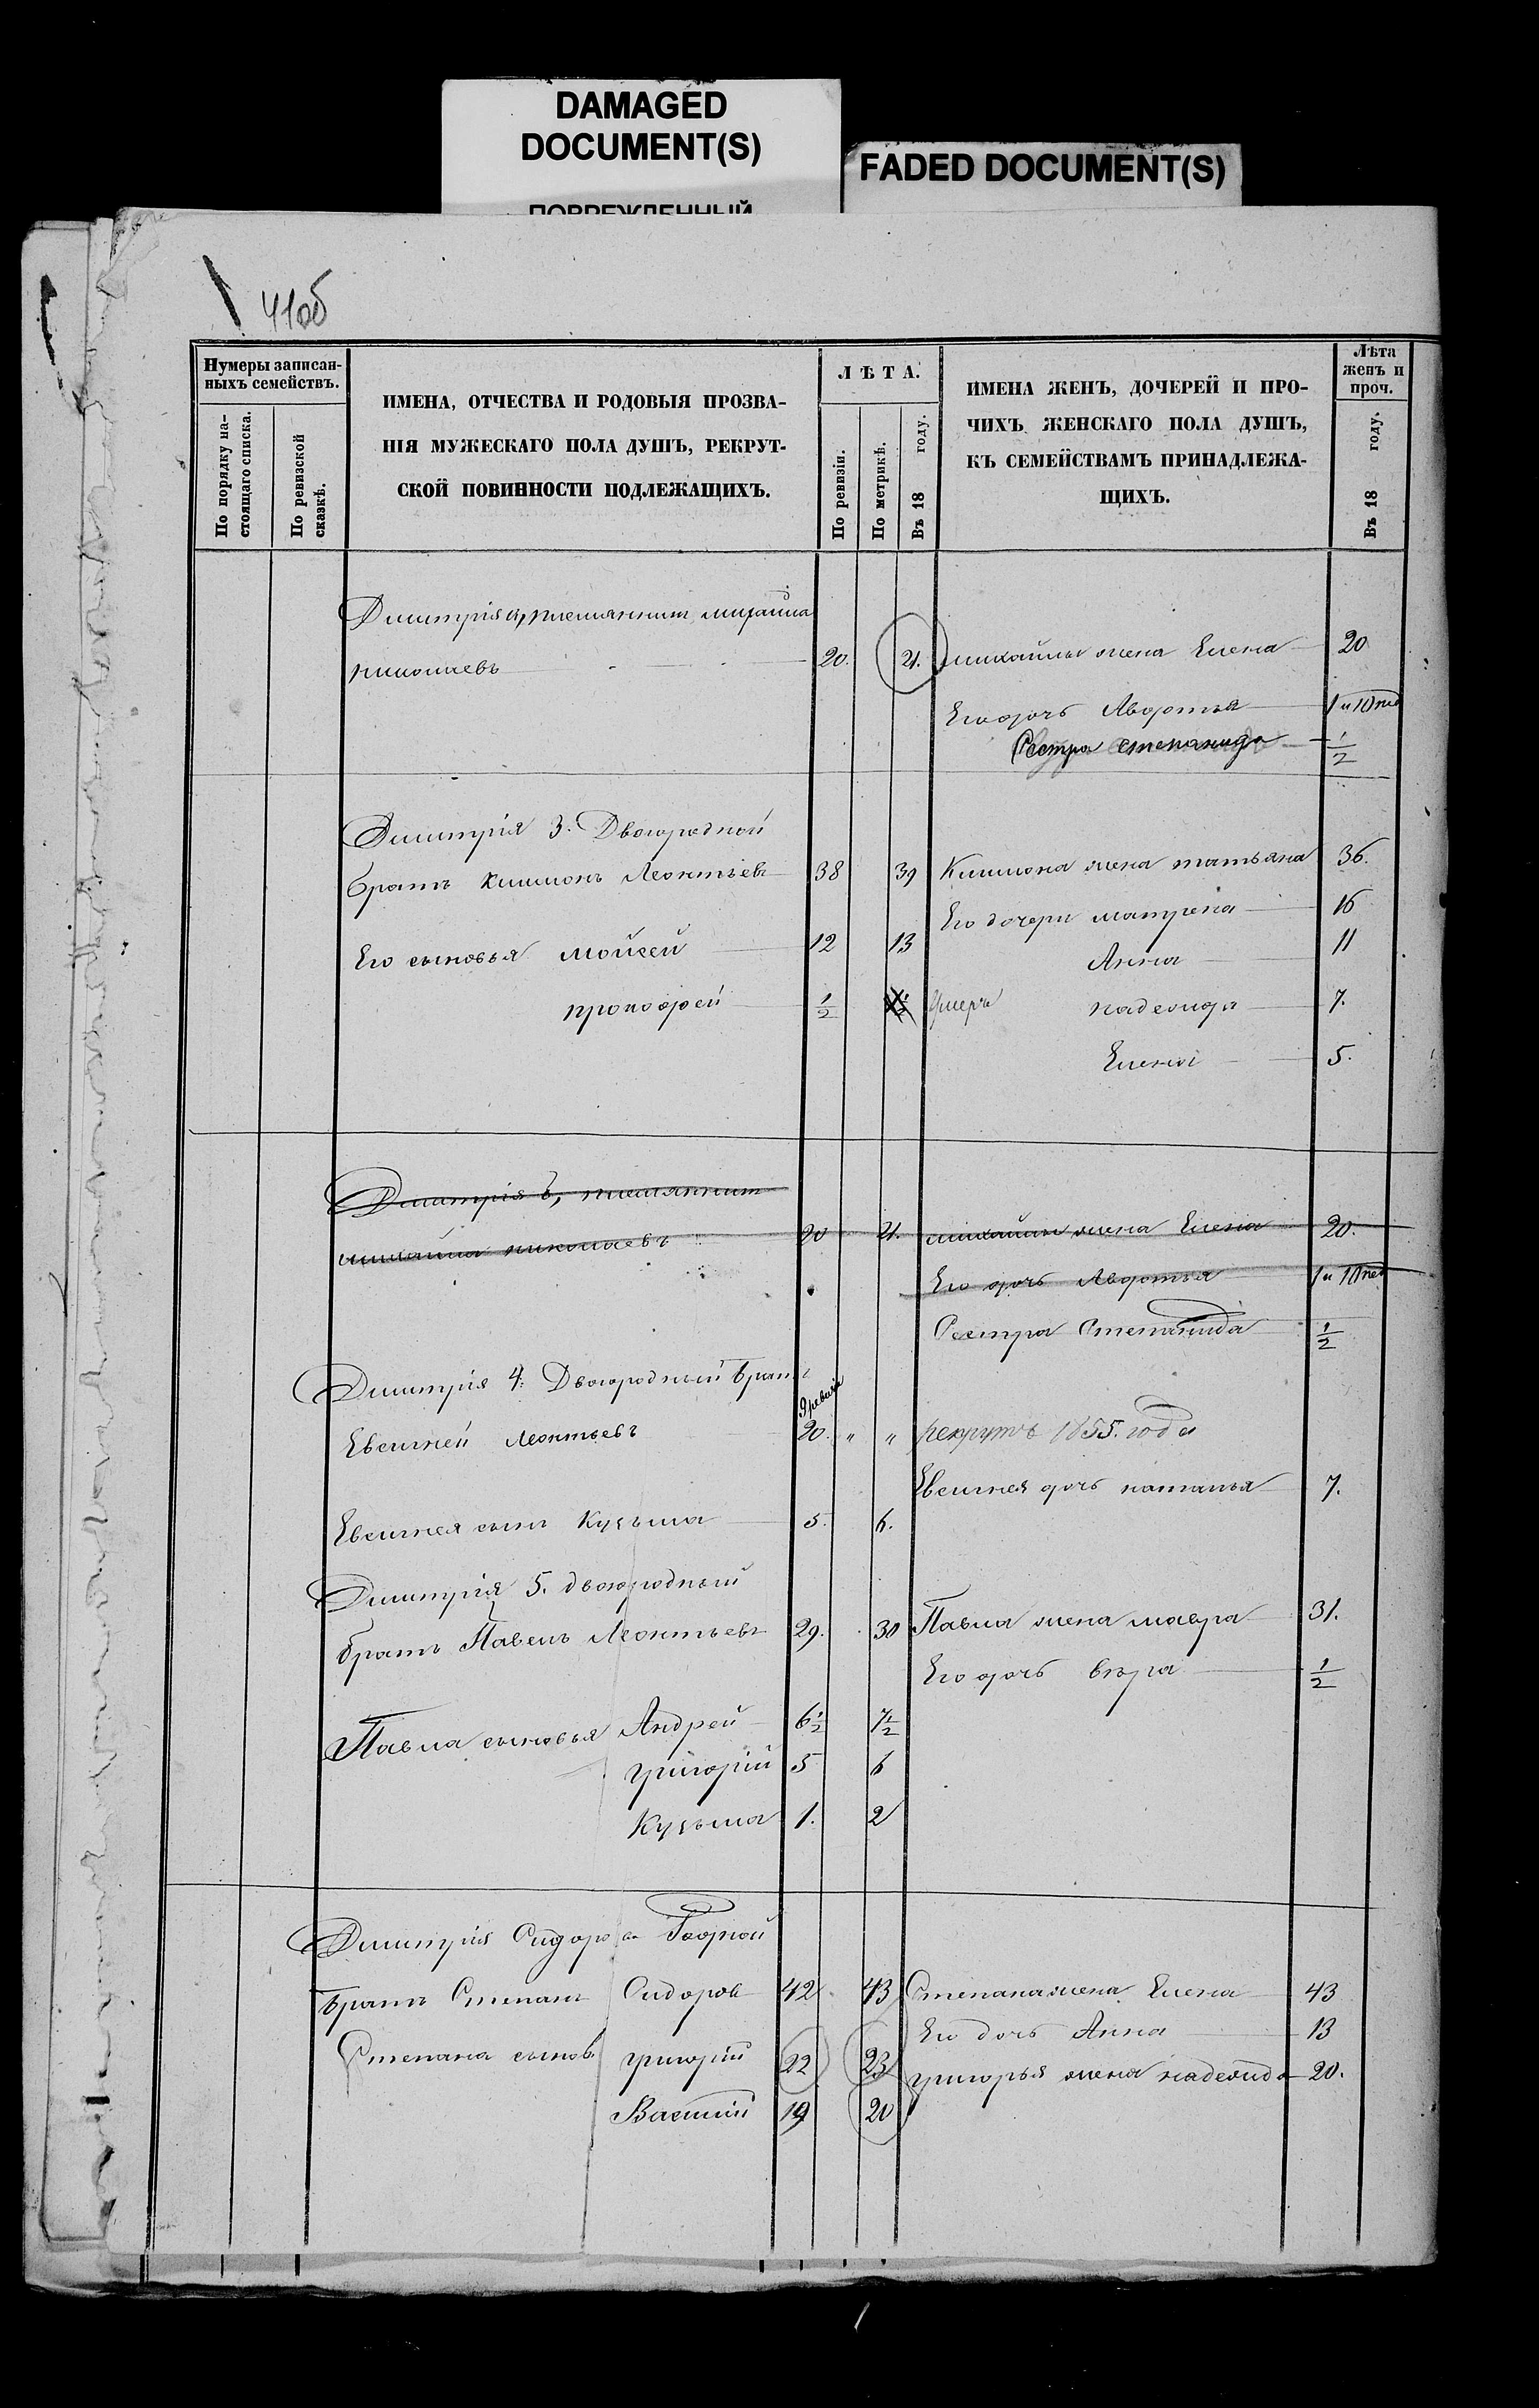 DAMAGED
DOCUMENT(S)
FADED DOCUMENT(S)
ПОВРЕЖДЕННЫЙ
41об
Нумеры записан-
ныхъ семействъ.
По порядку на-
стоящаго списка.
По ревизской
сказкѣ.
ИМЕНА, ОТЧЕСТВА И РОДОВЫЯ ПРОЗВА-
НІЯ МУЖЕСКАГО ПОЛА ДУШЪ, РЕКРУТ-
СКОЙ ПОВИННОСТИ ПОДЛЕЖАЩИХЪ.
ЛѢТА.
По ревизіи.
По метрикѣ.
Въ 18 году.
ИМЕНА ЖЕНЪ, ДОЧЕРЕЙ И ПРО-
ЧИХЪ ЖЕНСКАГО ПОЛА ДУШЪ,
КЪ СЕМЕЙСТВАМЪ ПРИНАДЛЕЖА-
ЩИХЪ.
Лѣта
женъ и
проч.
Въ 18 году.
Димитрія племянникъ михайла
николаевъ 20. 21. михайлы жена Елена 20
Его дочь Авдотья 1 и 10 не
Сестра степанида 1/2
Димитрія 3. Двоюродной
братъ Леонтьевъ 38 39 жена татьяна 36.
Его дочери матрена 16
Его сыновья мойсей 12 13
Анна 11
прокофей 1/2 умеръ надежда 7.
Елена 5.
Димитрія племянникъ
михайла николаевъ 20 21. михайлы жена Елена 20.
Его дочь Авдотья 1 и 10 не
Сестра Степанида 1/2
Димитрія 4. Двоюродный братъ
Евсигней Леонтьевъ 20. " " рекрутъ 1855. года
Евсигнея дочь наталья 7.
Евсигнея сынъ Кузьма 5. 6.
Димитрія 5. двоюродный
братъ Павелъ Леонтьевъ 29. 30 Павла жена мавра 31.
Его дочь вѣра 1/2
Павла сыновья Андрей 6 1/2 7 1/2
григорій 5 6
Кузьма 1. 2
Димитрія Сидорова Родной
братъ Степанъ Сидоровъ 42 43 Степана жена Елена 43
Его дочь Анна 13
Степана сынов. григорій 22 23 григорья жена надежда 20.
Василій 19 20